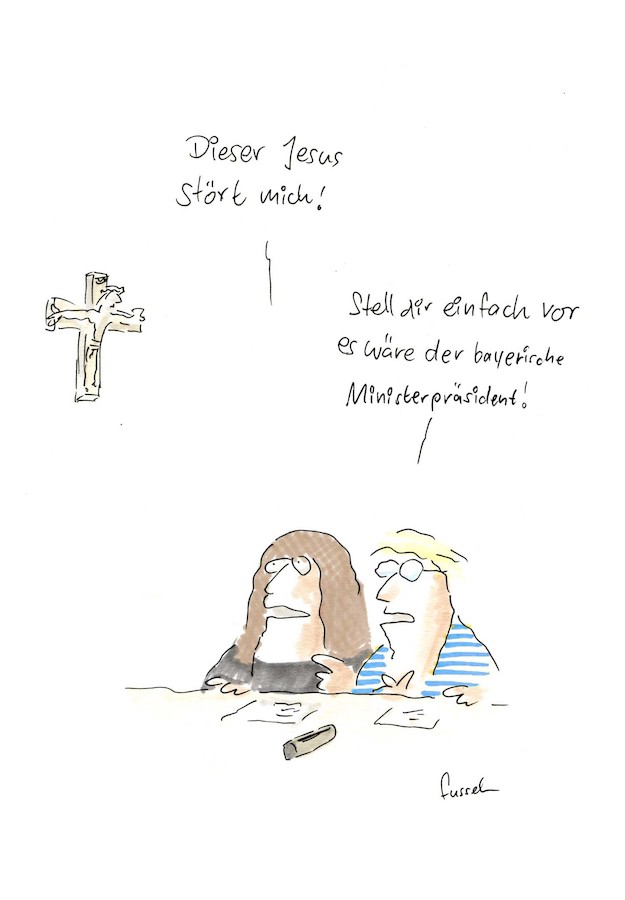 Dieser Jesus
stört mich!
Stell dir einfach vor
es wäre der bayerische
Ministerpräsident!
fussel